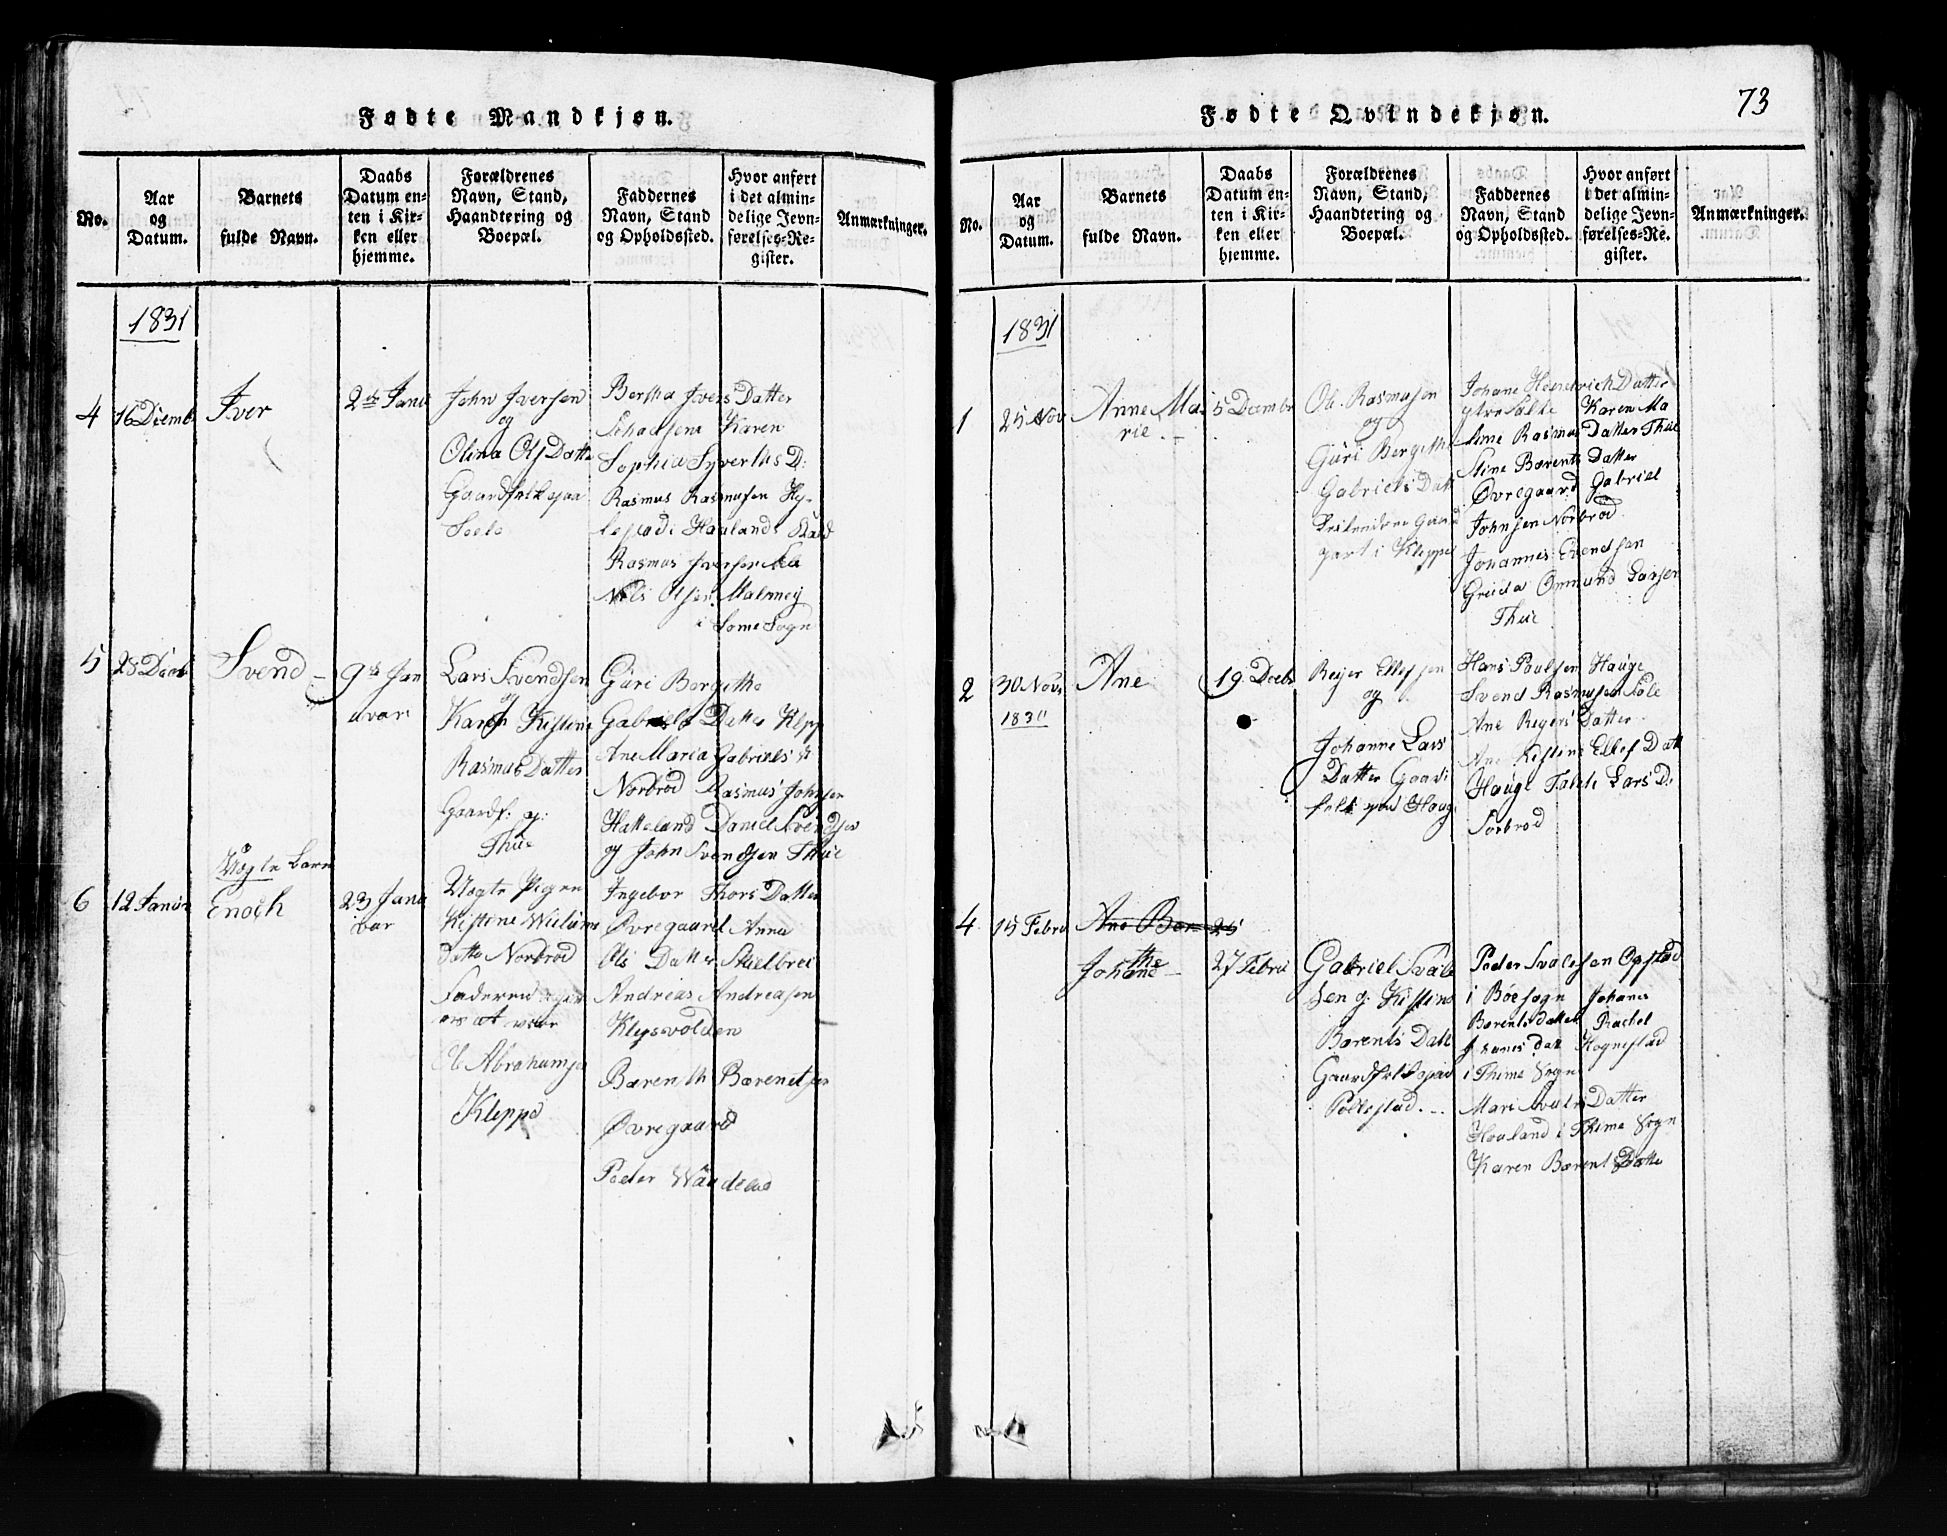 73
Fødte Mandkjøn.
No.
Aar
og
Datum.
Barnets
fulde Navn.
Daabs
Datum en-
ten i Kir-
ken eller
hjemme.
Forældrenes
Navn, Stand,
Haandtering og
Boepæl.
Faddernes
Navn, Stand
og Opholdssted.
Hvor anført
i det almin-
delige Jevn-
førelses-Re-
gister.
Anmærkninger.
1831
4
16 Dcemb
Iver
2de Janu
John Iversen
og
Olina Ols Datte
Gaardfolk paa
Bertha Ivers Datter
Karen
Sophia Syverths D:
Rasmus Rasmusen
Haaland
Rasmus Iversen
Niels Olsen Malmey
i Some Sogn
5
28 Decb
Svend
9de Jan
uvar
Lars Svendsen
og
Karen Kistine
Rasmus Datter
Gaardf: og:
Thue
Guri Bergitha
Gabriels Datter Klepp
Ane Maria Gabriels
Norbrød Rasmus Johnsen
Hatteland Daniel Svendsen
og John Svendsen Thue
6
12 Januv
Uægte Barn
Enoch
23 Janu
var
Uægte Pigen
Kistine Wiliams
datte Norbrød
Faderen
at være
Abrahamse
Kleppe
Ingebor Thors Datter
Øvregaard Anna
Ols Datter Skielbrei
Andreas Andreasen
Klepsvolden
Bærenth Bærentsen
Øvregaard
Peder
Fødte Qvindekjøn.
No.
Aar
og
Datum.
Barnets
fulde Navn.
Daabs
Datum en-
ten i Kir-
ken eller
hjemme.
Forældrenes
Navn, Stand,
Haandtering og
Boepæl.
Faddernes
Navn, Stand
og Opholdssted.
Hvor anført
i det almin-
delige Jevn-
førelses-Re-
gister.
Anmærkninger.
1831
1
25 Nov
Anne Ma-
rie
5 Decembr
Ol. Rasmusen
og
Guri Bergitha
Gabriels Datt
i Kleppe
Johane Hendrich Datter
Karen Ma
Rasmus Datter Thue
Stine Bærents Datter
Øvregaard Gabriel
Johnsen Norbrød
Johannes Evendsen
Omund Larsen
Thue
2
30 Novb
1830
Ane
19 Decbr
Reier Ellefsen
og
Johanne Lars
Datter Gaard
folk paa Haug
Hans Poulsen Hauge
Svend Rasmusen
Ane Reyers Datter
Ane Kistine Ellef Datt
Hauge Lars D:
Sørbrød
4
15 Febru
Ane Ber
the
Johane
25
27 Febru
Gabriel Svale
sen og Kistine
Bærents Datt
Gaardfolk paa
Peder Svalesen Opstad
i Bøe sogn Johane
Bærentsdatter Rachel
datt Hognestad
i Thime Sogn
Mari Datter
Haaland i Thime Sogn
Karen Bærent Datte